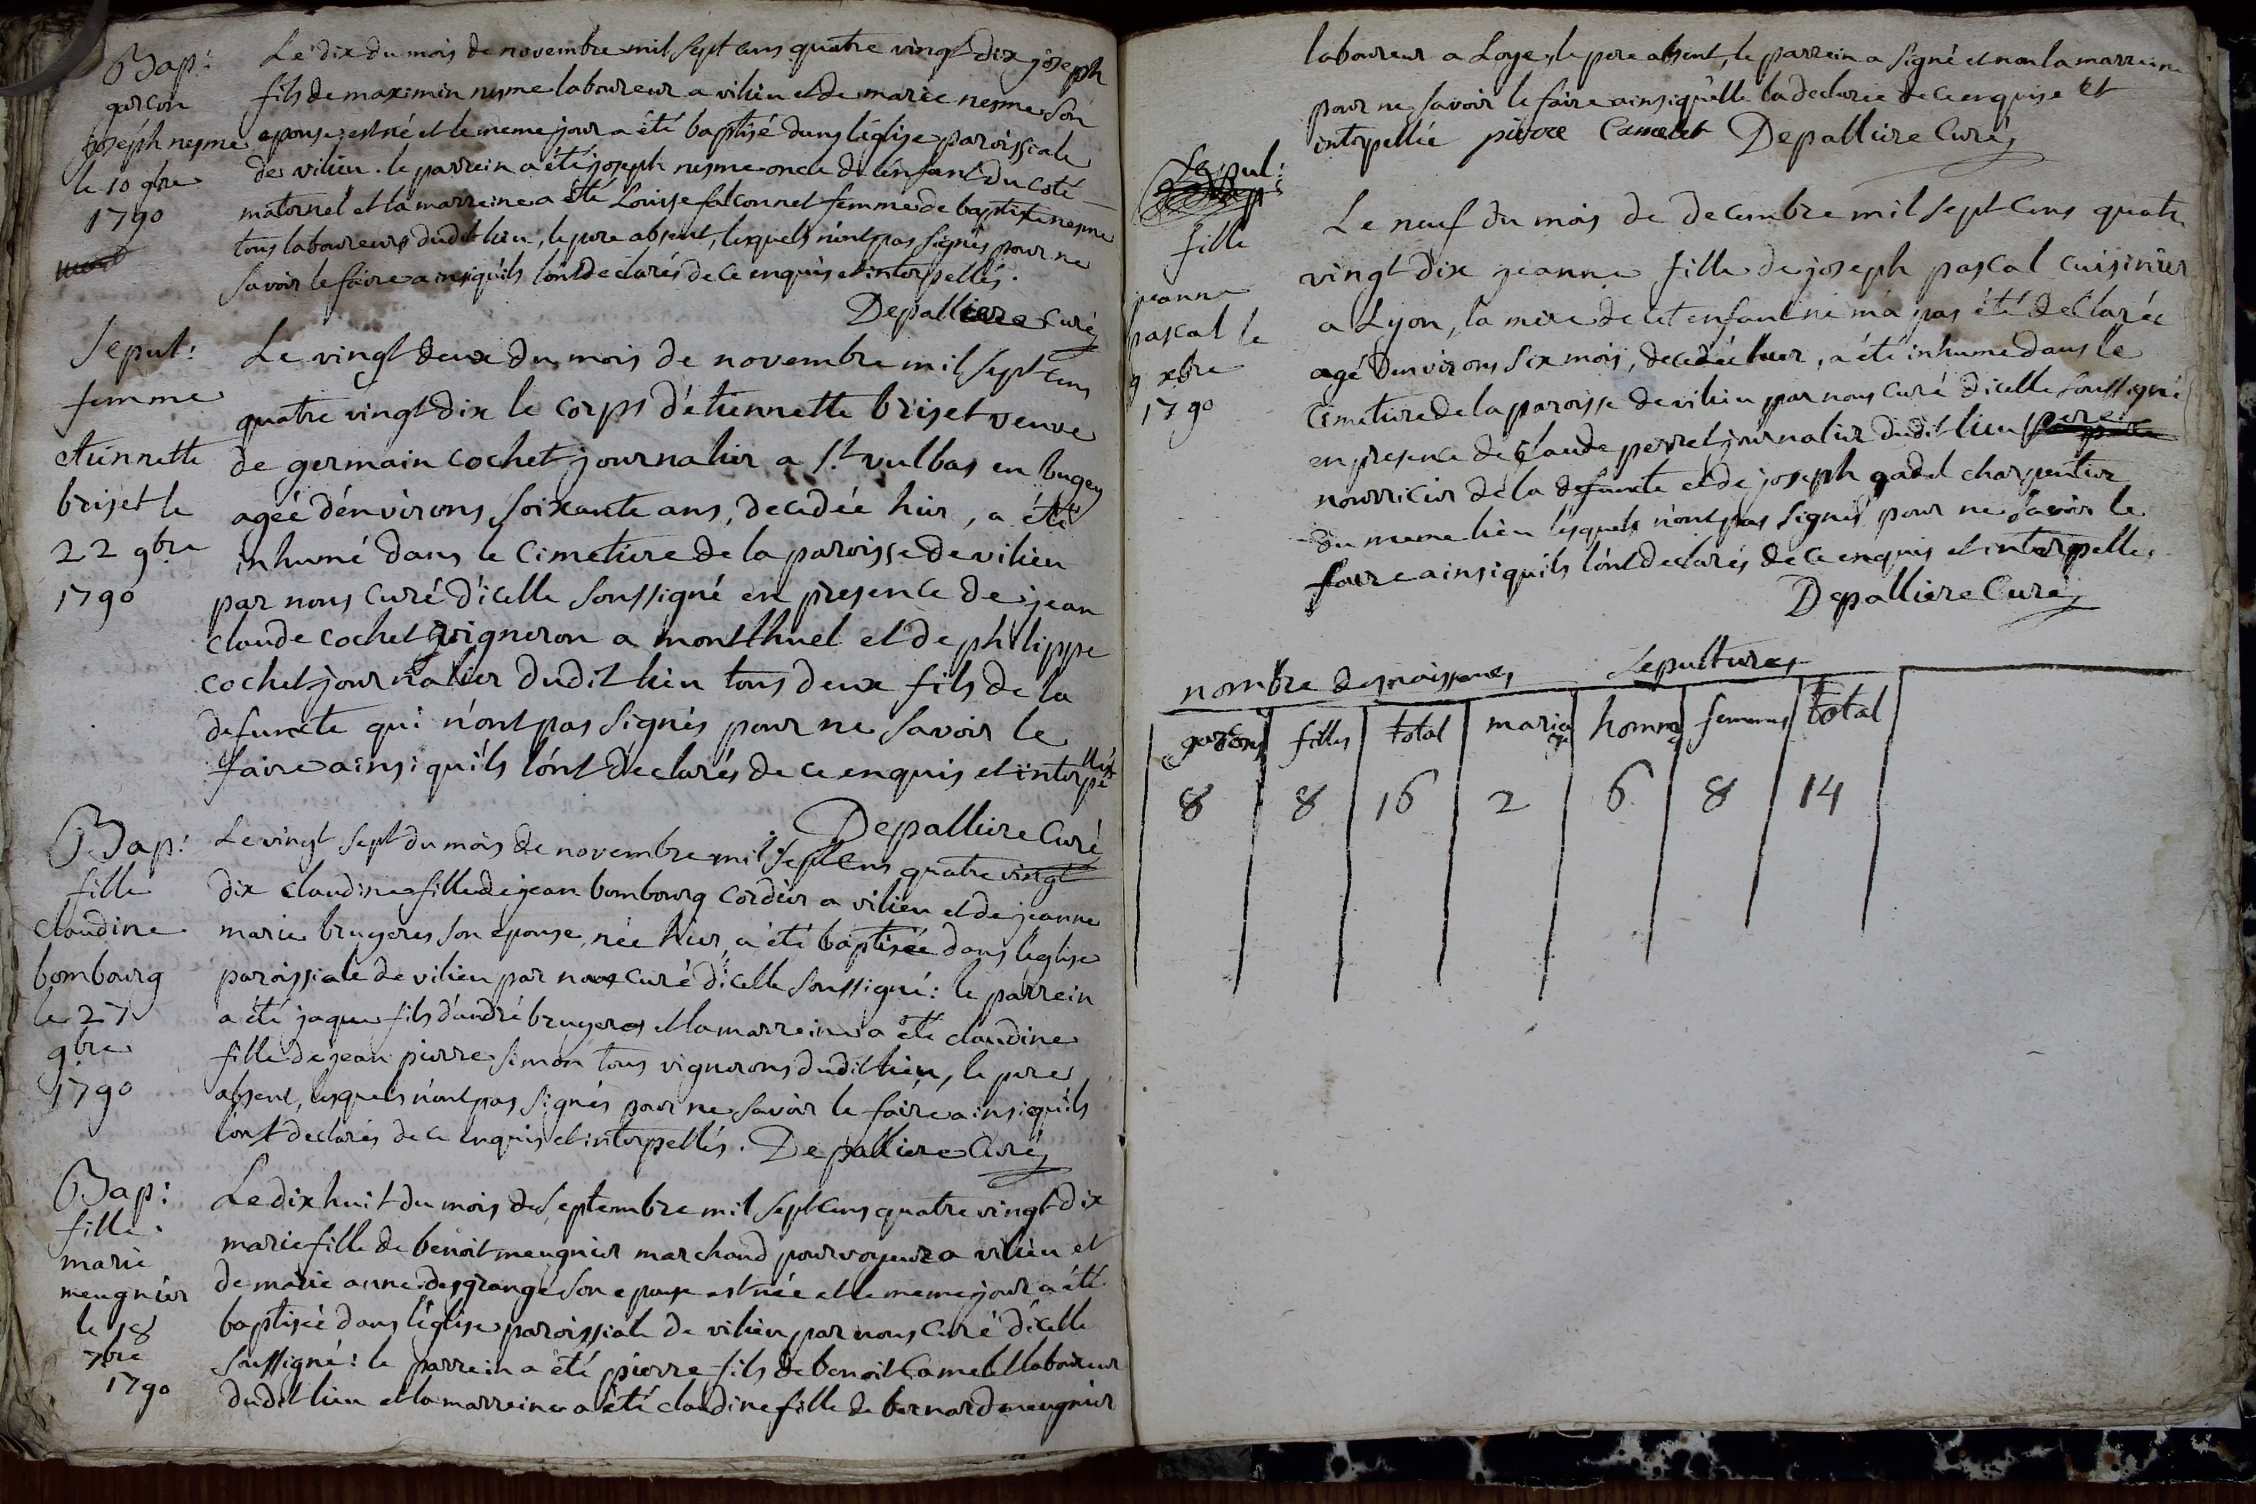 Bap:
garcon
joséph nesme
le 10 9bre
1790
Le dix du mois de novembre mil sept cens quatre vingt dix joseph
fils de maximin nesme laboureur a vilieu et de marie nesme son
epouse est né et le meme jour a été baptisé dans léglise paroissiale
de vilieu. le parrein a été joseph nesme oncle de lénfant du coté
maternel et la marreine a été Louise falconnet femme de baptiste nesme
tous laboureurs dudit lieu, le pere absent, lesquels n'ont pas signés pour ne
savoir le faire ainsi qu'ils l'ont declarés de ce enquis et interpellés.
Depalliere Curé
Sepul:
femme
etiennette
briset le
22 9bre
1790
Le vingt deux du mois de novembre mil sept cens
quatre vingt dix le corps d'étiennette briset veuve
de germain cochet journalier a St vulbas en bugey
ageé dénvirons soixante ans, decedée hier, a été
inhumé dans le cimetiere de la paroisse de vilieu
par nous curé dicelle soussigné en presence de jean
claude cochet vigneron a montluel et de philippe
cochet journalier dudit lieu tous deux fils de la
defuncte qui n'ont pas signés pour ne savoir le
faire ainsi qu'ils lónt déclarés de ce enquis et interpellés
Depalliere Curé
Bap:
fille
claudine
bombourg
le 27
9bre
1790
Le vingt sept du mois de novembre mil sept Cens quatre vingt
dix claudine fille de jean bombourg cordier a vilieu et de jeanne
marie brugeres son epouse, née hier, a été baptisée dans l'eglise
paroissiale de vilieu par nous curé dicelle soussigné: le parrein
a été jaque fils d'andré brugeres et la marreine a été claudine
fille de jean pierre simon tous vignerons dudit lieu, le pere
absent, lesquels n'ont pas signés pour ne savoir le faire ainsi qu'ils
lónt declarés de ce enquis et interpellés. Depalliere Curé
Bap:
fille
marie
meugnier
le 18
7bre
1790
Le dix huit du mois de septembre mil sept cens quatre vingt dix
marie fille de benoit meugnier marchand pourvoyeur a vilieu et
de marie anne desgrange son epouse est née et le meme jour a été
baptiseé dans l'églises paroissiale de vilieu par nous curé dicelle
soussigné: le parrein a été pierre fils de benoit Camelet laboureur
dudit lieu et la marreine a été claudine fille de bernard meugnier
laboureur a Loye, le pere absent, le parrein a signé et non la marreine
pour ne savoir le faire ainsi qu'élle la declarée de ce enquise et
interpellée pierre Camelet Depalliere Curé
Sepul:
fille
jeanne
pascal le
9 xbre
1790
Le neuf du mois de decembre mil sept cens quatre
vingt dix jeanne fille de joseph pascal cuisinier
a Lyon, la mere de cet enfant ne m'a pas été declarée
agé denvirons six mois, decedée hier, a été inhumé dans le
cimetiere de la paroisse de vilieu par nous curé dicelle soussigné
en presence de claude perret journalier dudit lieu pere
nourricier de la defuncte et de joseph gadel charpentier
du meme lieu lésquels n'ont pas signés pour ne savoir le
faire ainsi qu'ils lónt declarés de ce enquis et interpellés
Depalliere Curé
nombre des naissances Sepultures
garcons filles total mariage homme femmes total
8 8 16 2 6 8 14